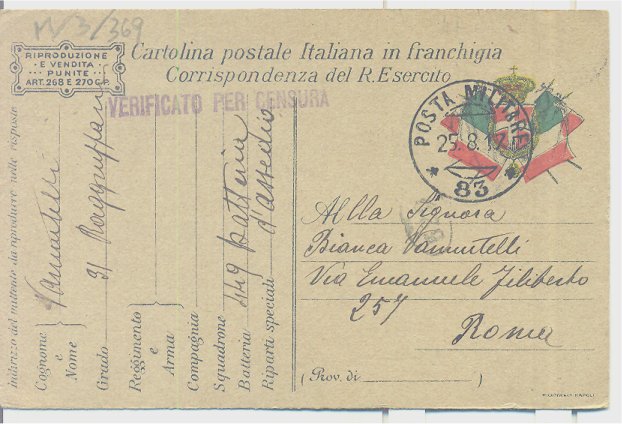 M/3/369
RIPRODUZIONE
E VENDITA
PUNITE
ART. 268 E 270 C.P.
Cartolina postale Italiana in franchigia
Corrispondenza del R. Esercito
VERIFICATO PER CENSURA
POSTA MILITARE
25.8.17
83
Allla Signora
Bianca Vannutelli
Via Emanuele Filiberto
257
Roma
(Prov. di )
Indirizzo del mittente da riprodurre nelle risposte
Cognome e Nome Vannutelli
Grado
Reggimento e Arma
Compagnia
Squadrone
Batteria 449 batteria
Riparti speciali d'assedio